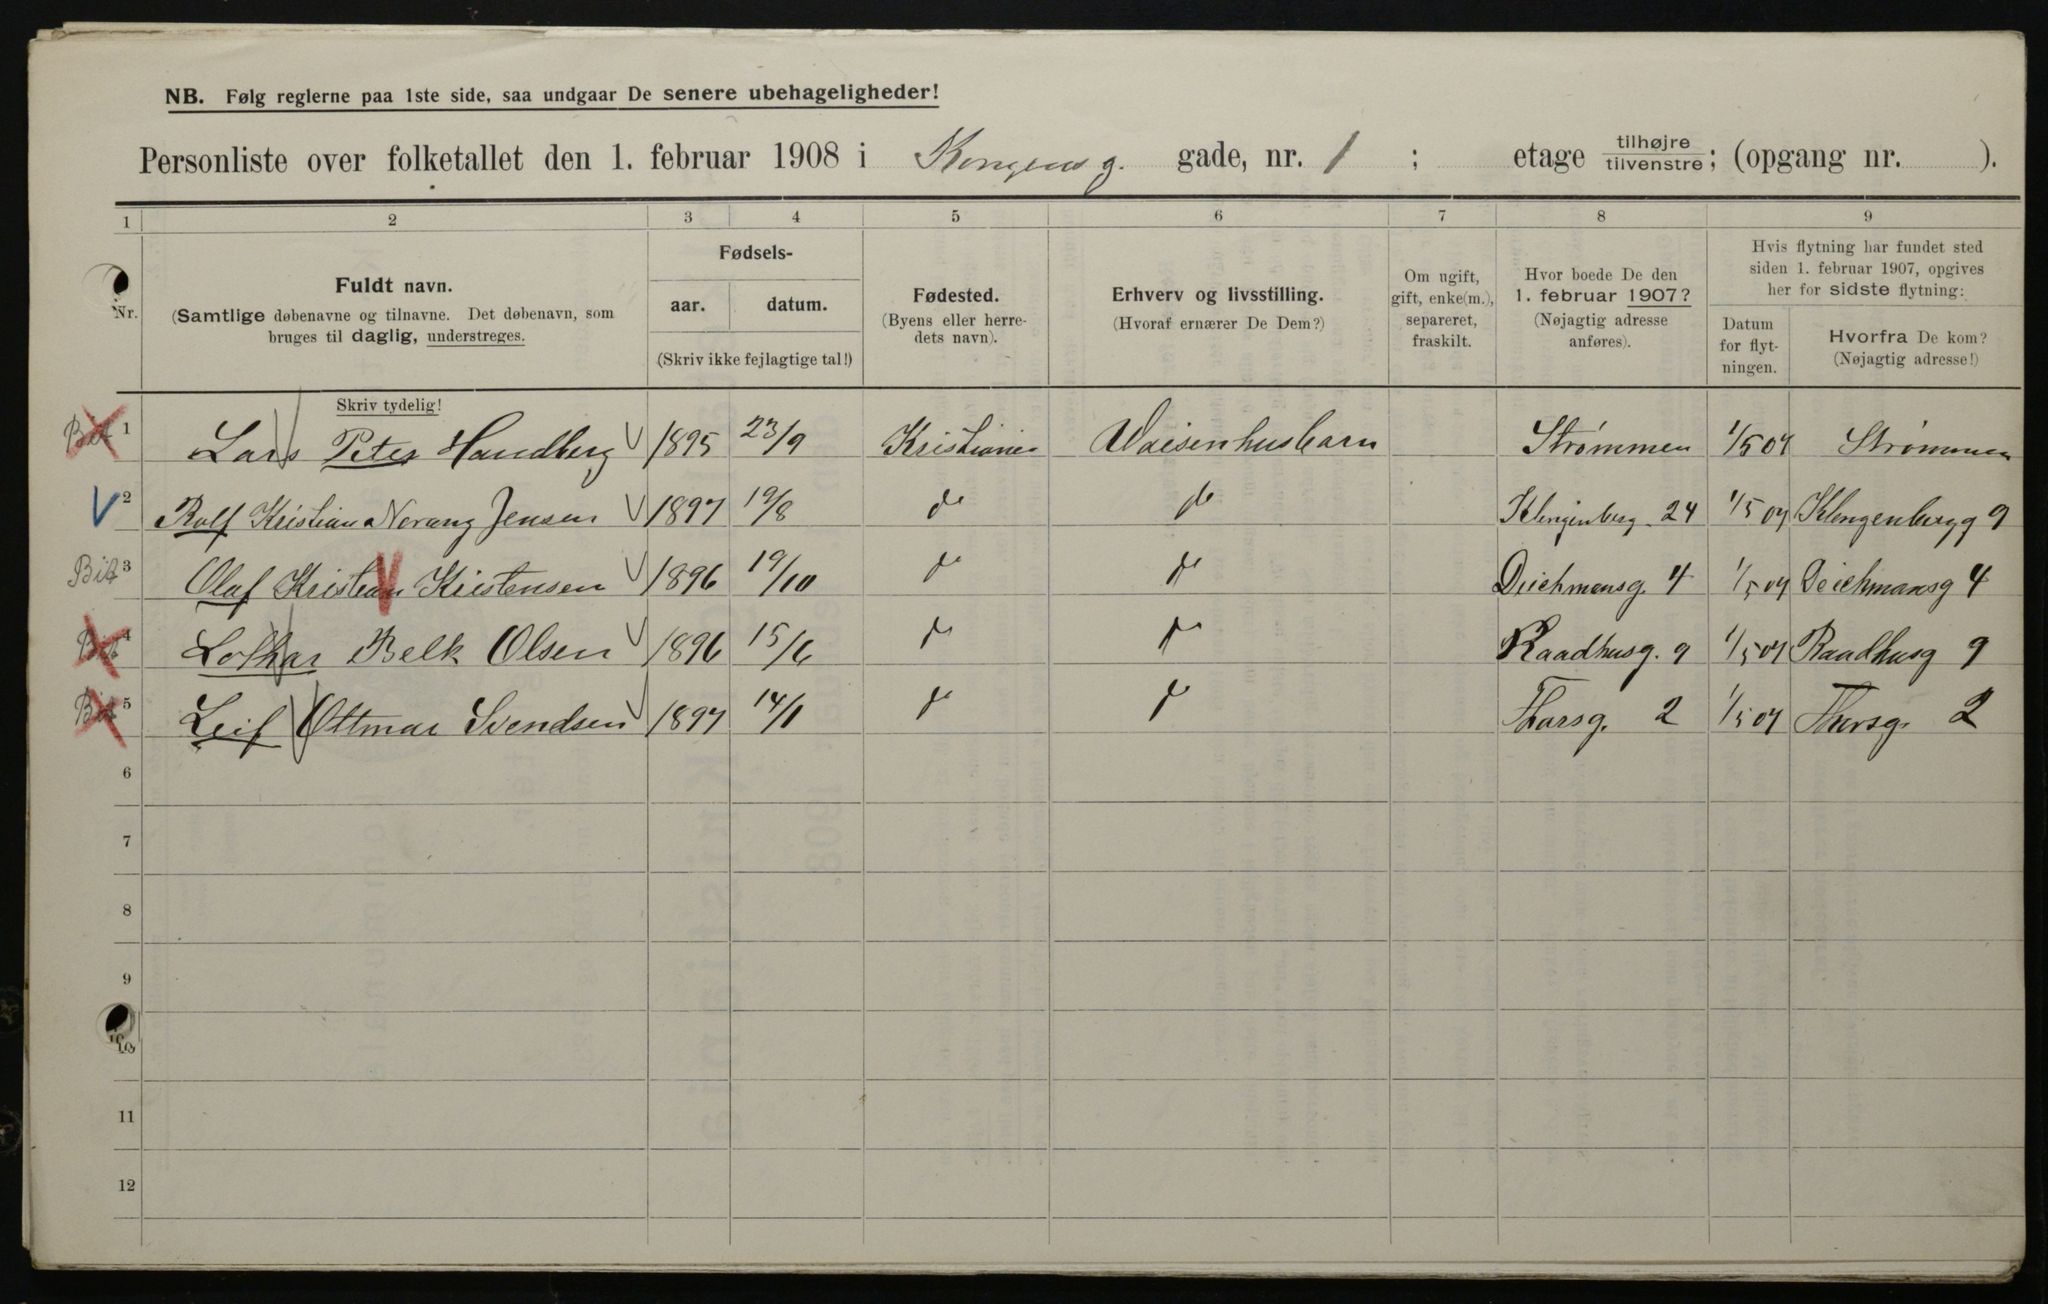 NB. Følg reglerne paa 1ste side, saa undgaar De senere ubehageligheder!
Personliste over folketallet den 1. februar 1908 i Kongens g. gade, nr. 1 ; etage tilhøjre/tilvenstre; (opgang nr. ).
1 2 3 4 5 6 7 8 9
Nr.
Fuldt navn.
(Samtlige døbenavne og tilnavne. Det døbenavn, som
bruges til daglig, understreges.
Fødsels-
aar. datum.
(Skriv ikke fejlagtige tal!)
Fødested.
(Byens eller herre-
dets navn).
Erhverv og livsstilling.
(Hvoraf ernærer De Dem?)
Om ugift,
gift, enke(m.),
separeret,
fraskilt.
Hvor boede De den
1. februar 1907?
(Nøjagtig adresse
anføres).
Hvis flytning har fundet sted
siden 1. februar 1907, opgives
her for sidste flytning:
Datum
for flyt-
ningen.
Hvorfra De kom?
(Nøjagtig adresse!)
Skriv tydelig!
1 Lars Peter Handberg 1895 23/9 Kristiania Vaisenhusbarn Strømmen 1/5 07 Strømmen
2 Rolf Kristian Nerang Jensen 1897 19/8 do do Klingenberg. 24 1/5 07 Klengenbergg 9
Bif 3 Olaf Kristian Kristensen 1896 19/10 do do Deichmansg. 4 1/5 07 Deichmansg 4
4 Lothar Belk Olsen 1896 15/6 do do Raadhusg. 9 1/5 07 Raadhusg 9
5 Leif Ottmar Svendsen 1897 14/1 do do Thorsg. 2 1/5 07 Thorsg. 2
6
7
8
9
10
11
12